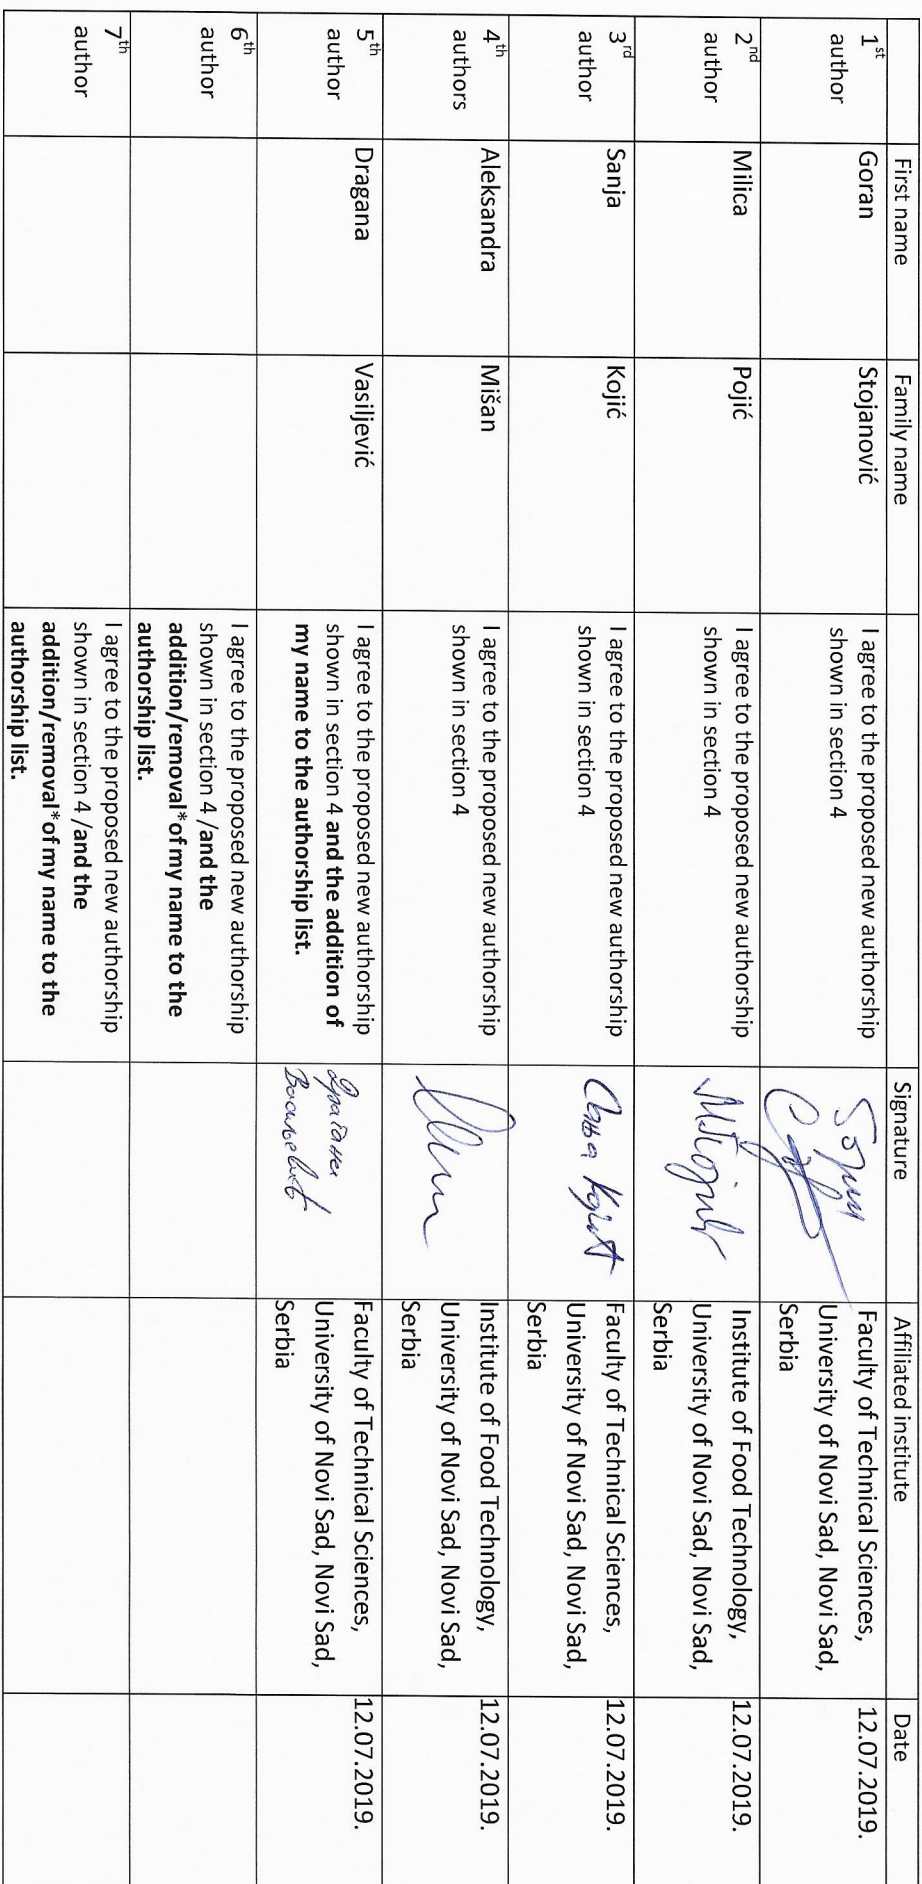 First name Family name Signature Affiliated institute Date
1st author Goran Stojanović I agree to the proposed new authorship shown in section 4 Faculty of Technical Sciences, University of Novi Sad, Novi Sad, Serbia 12.07.2019.
2nd author Milica Pojić I agree to the proposed new authorship shown in section 4 Institute of Food Technology, University of Novi Sad, Novi Sad, Serbia 12.07.2019.
3rd author Sanja Kojić I agree to the proposed new authorship shown in section 4 Сања Којић Faculty of Technical Sciences, University of Novi Sad, Novi Sad, Serbia 12.07.2019.
4th authors Aleksandra Mišan I agree to the proposed new authorship shown in section 4 Institute of Food Technology, University of Novi Sad, Novi Sad, Serbia 12.07.2019.
5th author Dragana Vasiljević I agree to the proposed new authorship shown in section 4 and the addition of my name to the authorship list. Драгана Васиљевић Faculty of Technical Sciences, University of Novi Sad, Novi Sad, Serbia 12.07.2019.
6th author I agree to the proposed new authorship shown in section 4 /and the addition/removal*of my name to the authorship list.
7th author I agree to the proposed new authorship shown in section 4 /and the addition/removal*of my name to the authorship list.